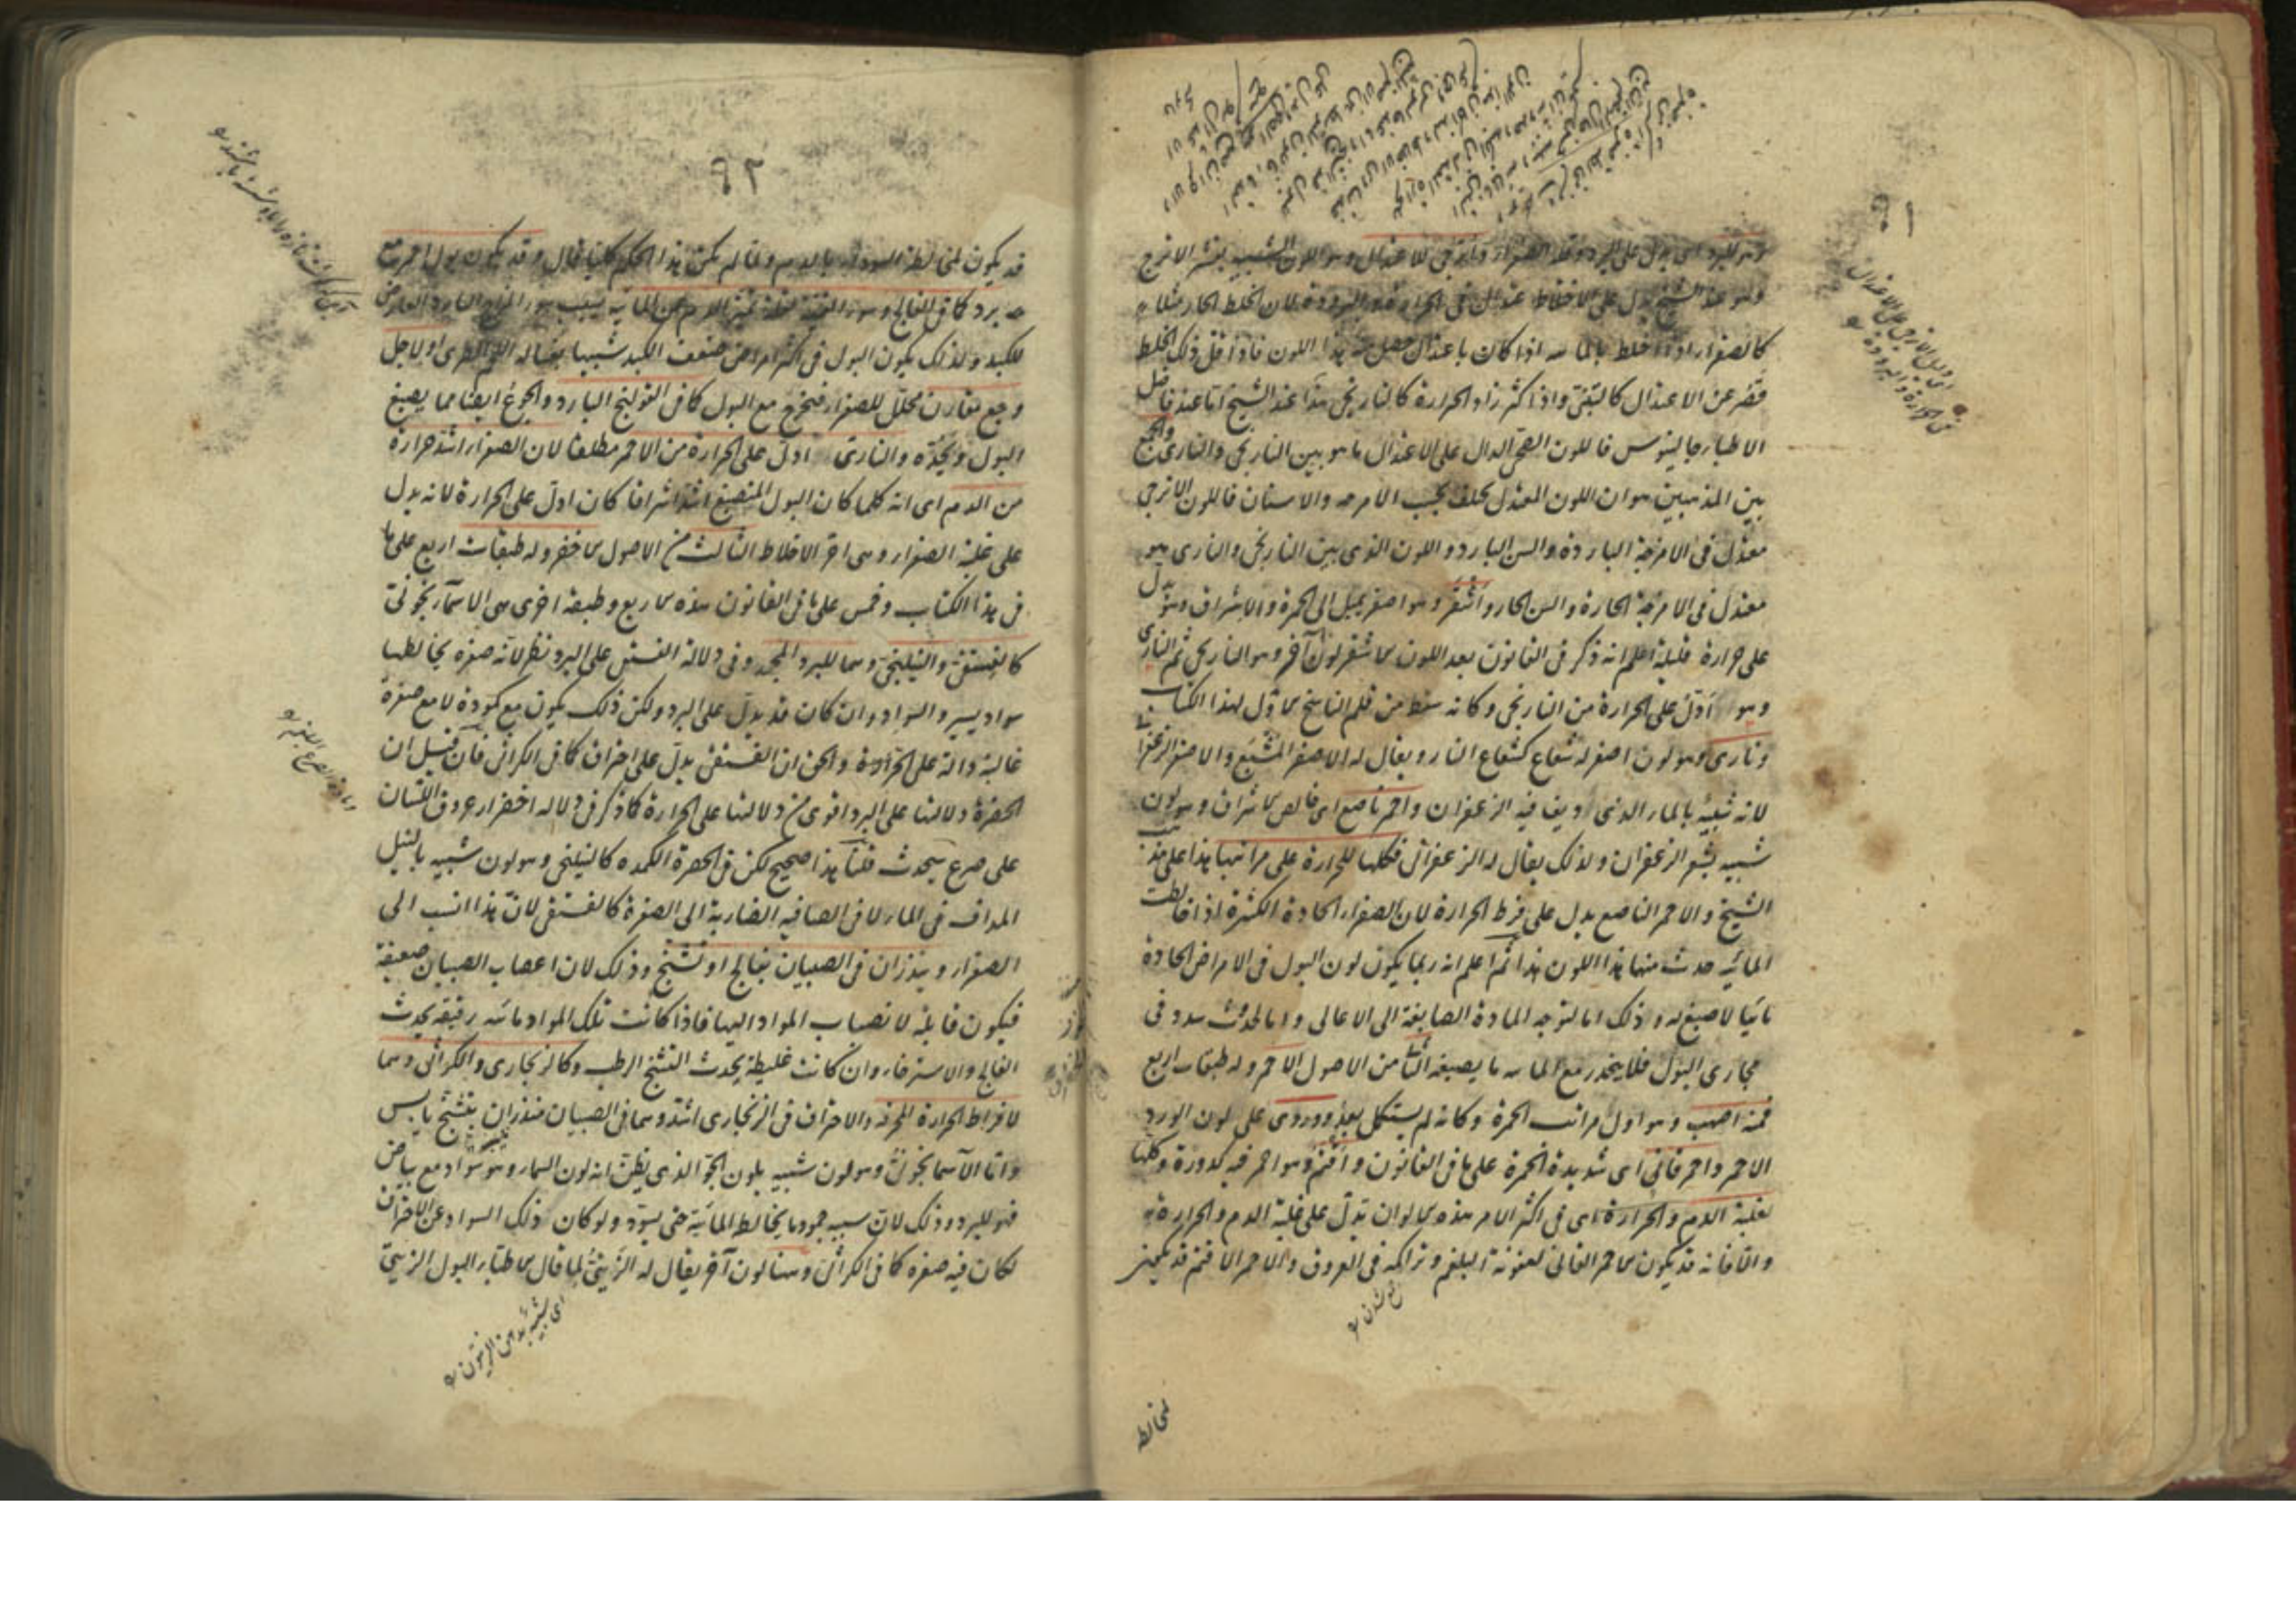 ٩١
وهو للبرد اى يدل على البرد وقلة الصفراء واترجى للاعتدال وهو اللون الشبيه بقشر الاترج
وهو عند الشيخ يدل على الاعتدال فى الحرارة والبرودة لان الخلط الحار مثلا
كالصفراء اذا اختلط بالمائية اذا كان باعتدال حصل هذا اللون فاذا قل ذلك الخلط
قصر عن الاعتدال كالتبنى واذا كثر زاد الحرارة كالنارنجى هذا عند الشيخ اما عند فاضل
الاطباء جالينوس فاللون الصحى الدال على الاعتدال ما هو بين النارنجى والنارى والجمع
بين المذهبين هو ان اللون المعتدل يختلف بحسب الامزجة والاسنان فاللون الاترجى
معتدل فى الامزجة الباردة والسن البارد و اللون الذى بين النارنجى والنارى هو
معتدل فى الامزجة الحارة والسن الحار واشقر وهو اصفر يميل الى الحمرة والاشراف وهو يدل
على حرارة قليلة اعلم انه ذكر فى القانون بعد اللون الاشقر لونا آخر وهو النارنجى ثم النارى
وهو ادل على الحرارة من النارنجى وكانه سقط من قلم الناسخ الاول لهذا الكتاب
ونارى وهو لون اصفر له شعاع كشعاع النار ويقال له الاصفر المشبع والاصفر الزعفرانى
لانه شبيه بالماء الذى اديف فيه الزعفران واحمر ناصع اى خالص الاشراف وهو لون
شبيه بشعر الزعفران ولذلك يقال له الزعفرانى فكلها للحرارة على مراتبها هذا على مذهب
الشيخ والاحمر الناصع يدل على فرط الحرارة لان الصفراء الحادة الكثيرة اذا خالطت
المائية حدث منها هذا اللون هذا ثم اعلم انه ربما يكون لون البول فى الامراض الحادة
مائيا لا صبغ له وذلك اما لتوجه المادة الصابغة الى الاعالى واما لحدوث سدد فى
مجارى البول فلا ينحدر مع المائية ما يصبغه الثانى من الاصول الاحمر وله طبقات اربع
فمنه اصهب وهو اول مراتب الحمرة وكانه لم يستكمل بعد ووردى على لون الورد
الاحمر واحمر قانى اى شديدة الحمرة على ما فى القانون واقتم وهو احمر فيه كدورة وكلها
لغلبة الدم والحرارة اى فى اكثر الامر هذه الالوان تدل على غلبة الدم والحرارة
والا فانه قد يكون الاحمر القانى لعفونة البلغم وتراكمه فى العروق والاحمر الاقتم قد يميز
لمخالطة
٩٢
قد يكون لمخالطة السوداء بالدم ولما لم يكن هذا الحكم كليا قال وقد يكون بول احمر مع
برد كما فى الفالج وسوء القنية لقلة تميز الدم من المائية بسبب سوء المزاج البارد العارض
للكبد ولذلك يكون البول فى اكثر امراض ضعف الكبد شبيها بغسالة اللحم الطرى او لاجل
وجع مقارن محلل للصفراء فيخرج مع البول كما فى القولنج البارد والجوع ايضا مما يصبغ
البول ويحده والنارى ادل على الحرارة من الاحمر مطلقا لان الصفراء اشد حرارة
من الدم اى انه كلما كان البول المنصبغ اشد اشراقا كان ادل على الحرارة لانه يدل
على غلبة الصفراء وهى احر الاخلاط الثالث من الاصول الاخضر وله طبقات اربع على ما
فى هذا الكتاب وخمس على ما فى القانون هذه الاربع وطبقة اخرى هى الاسمآنجونى
كالفستقى والنيلنجى وهما للبرد المجمد وفى دلالة الفستقى على البرد نظر لانه صفرة يخالطها
سواد يسير والسواد وان كان قد يدل على البرد ولكن ذلك يكون مع كمودة لا مع صفرة
غالبة دالة على الحرارة والحق ان الفستقى يدل على احتراق كما فى الكراثى فان قيل ان
الخضرة دلالتها على البرد اقوى من دلالتها على الحرارة كما ذكر فى دلالة اخضرار عروق اللسان
على صرع سيحدث قلنا هذا صحيح لكن فى الخضرة الكمدة كالنيلنجى وهو لون شبيه بالنيل
المداف فى الماء لا فى الصافية الضاربة الى الصفرة كالفستقى لان هذا انسب الى
الصفراء وينذران فى الصبيان بفالج او تشنج وذلك لان اعصاب الصبيان ضعيفة
فيكون قابلة لانصباب المواد اليها فاذا كانت تلك المواد مائية رقيقة يحدث
الفالج والاسترخاء وان كانت غليظة يحدث التشنج الرطب وكالزنجارى والكراثى وهما
لافراط الحرارة المحرقة والاحتراق فى الزنجارى اشد وهما فى الصبيان منذران بتشنج يابس
واما الاسمانجونى وهو لون شبيه بلون الجو الذى يظن انه لون السماء وهو سواد مع بياض
فهو للبرد وذلك لان سببه جمود ما يخالط المائية حتى يسود ولو كان ذلك السواد عن الاحتراق
لكان فيه صفرة كما فى الكراثى وهنا لون آخر يقال له الزيتى لما قال الاطباء البول الزيتى
اى شبيه بدهن الزيتون